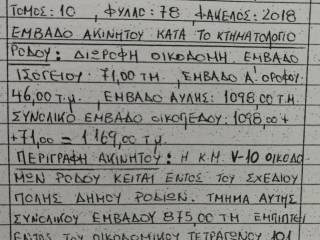 ΤΟΜΟΣ: 10, ΦΥΛΛΟ: 78, ΦΑΚΕΛΟΣ: 2018
ΕΜΒΑΔΟ ΑΚΙΝΗΤΟΥ ΚΑΤΑ ΤΟ ΚΤΗΜΑΤΟΛΟΓΙΟ
ΡΟΔΟΥ: ΔΙΩΡΟΦΗ ΟΙΚΟΔΟΜΗ ΕΜΒΑΔΟ
ΙΣΟΓΕΙΟΥ: 71,00 ΤΜ, ΕΜΒΑΔΟ Α' ΟΡΟΦΟΥ
46,00 Τ.Μ, ΕΜΒΑΔΟ ΑΥΛΗΣ: 1098,00 Τ.Μ
ΣΥΝΟΛΙΚΟ ΕΜΒΑΔΟ ΟΙΚΟΠΕΔΟΥ: 1098,00 +
+71,00 = 1169,00 Τ.Μ.
ΠΕΡΙΓΡΑΦΗ ΑΚΙΝΗΤΟΥ: Η Κ.Μ. V-10 ΟΙΚΟΔΟ
ΜΩΝ ΡΟΔΟΥ ΚΕΙΤΑΙ ΕΝΤΟΣ ΤΟΥ ΣΧΕΔΙΟΥ
ΠΟΛΗΣ ΔΗΜΟΥ ΡΟΔΙΩΝ. ΤΜΗΜΑ ΑΥΤΗΣ
ΣΥΝΟΛΙΚΟΥ ΕΜΒΑΔΟΥ 875,00 ΤΜ ΕΜΠΙΠΤΕΙ
ΕΝΤΟΣ ΤΟΥ ΟΙΚΟΔΟΜΙΚΟΥ ΤΕΤΡΑΓΩΝΟΥ 101